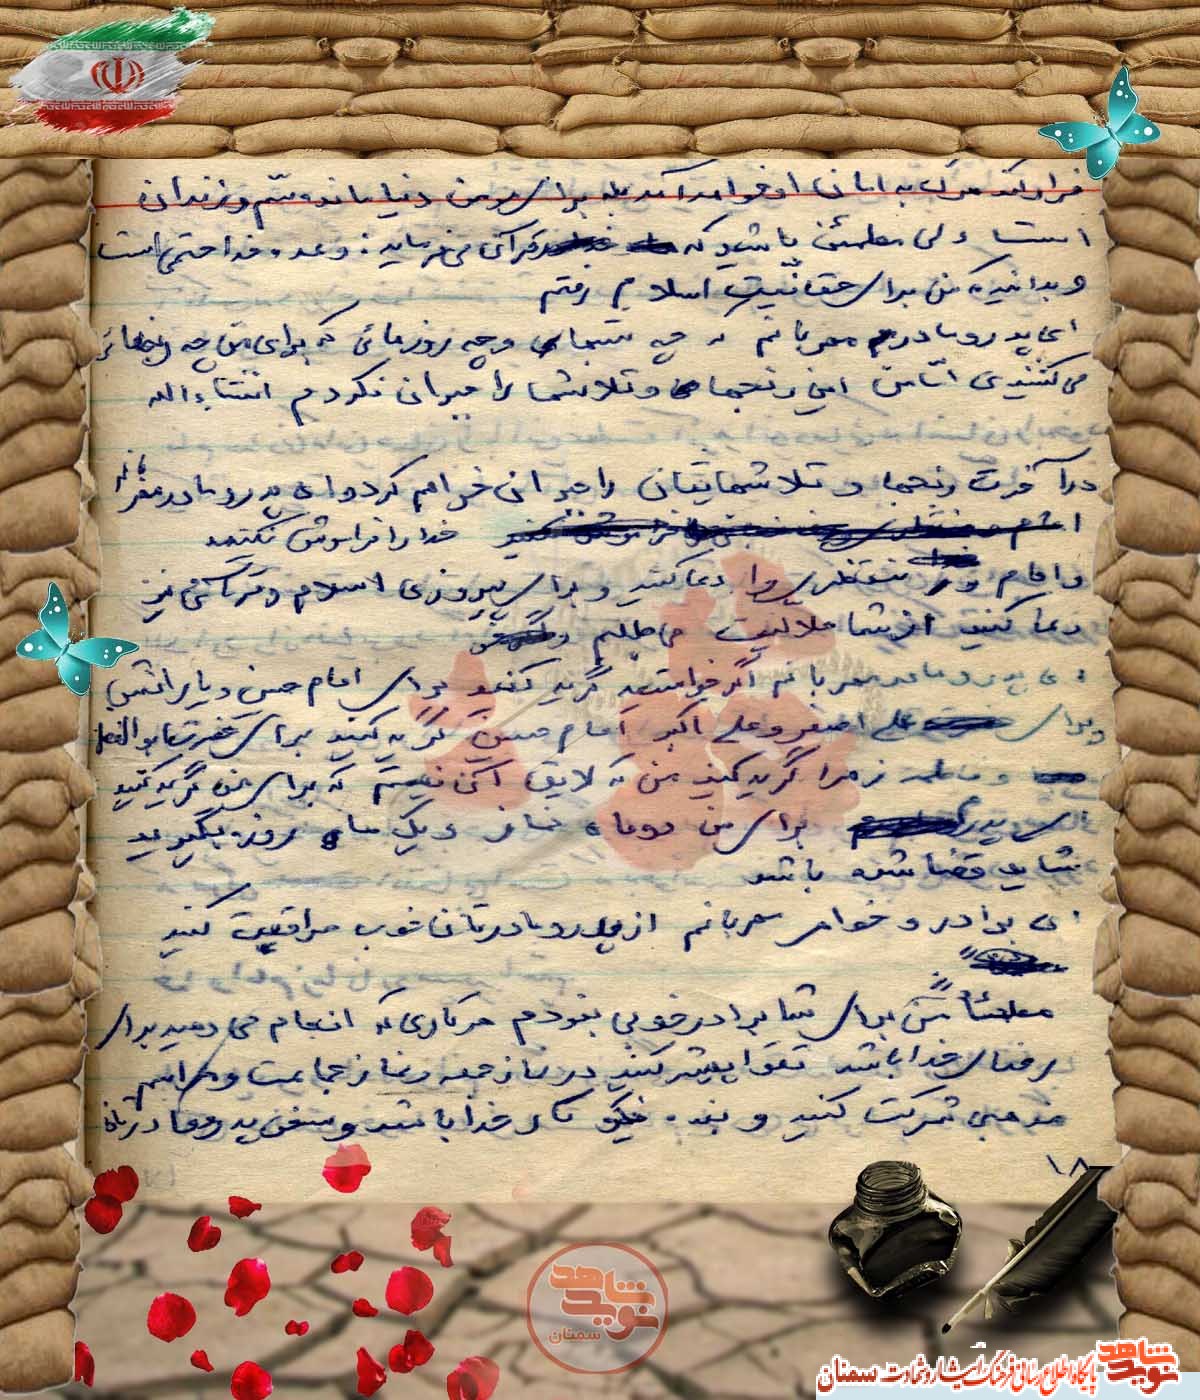 فرا و آنکه مرگ به امانی او خواهد آمد بله برای مومن دنیا مانند قفس و زندان
است ولی مطمئن باشید که قرآن می فرماید: وعده خدا حتمی است
و بدانید که من برای حقانیت اسلام رفتم
ای پدر و مادر مهربانم که چه شبهای و چه روزهائی که برای من چه رنجهائی
می کشیدی اما من این رنجها و تلاشها را جبران نکردم انشاءالله
در آخرت رنجها و تلاشهایتان را جبران خواهم کرد و ای پدر و مادر مهربانم
خدا را فراموش نکنید
و امام و منتظری را دعا کنید و برای پیروزی اسلام و قرآن نیز
دعا کنید از شما حلالیت می طلبم
ای پدر و مادر مهربانم اگر خواستید گریه کنید برای امام حسین و یارانش
و برای علی اصغر و علی اکبر امام حسین گریه کنید برای حضرت ابوالفضل
و فاطمه زهرا گریه کنید من که لایق آن نیستم که برای من گریه کنید
ای پدر برای من دو ماه نماز و یک ماه روزه بگیرید
شاید قضا شده باشد
ای برادر و خواهر مهربانم از پدر و مادرتان خوب مراقبت کنید
مطمئناً من برای شما برادر خوبی نبودم هر کاری که انجام می دهید برای
رضای خدا باشد تقوا پیشه کنید در نماز جمعه و نماز جماعت و مراسم
مذهبی شرکت کنید و بنده نیکو کار خدا باشد و سخن پدر و مادرتان
۱۸
نوید شاهد
سمنان
نوید شاهد
پایگاه اطلاع رسانی فرهنگ ایثار و شهادت سمنان